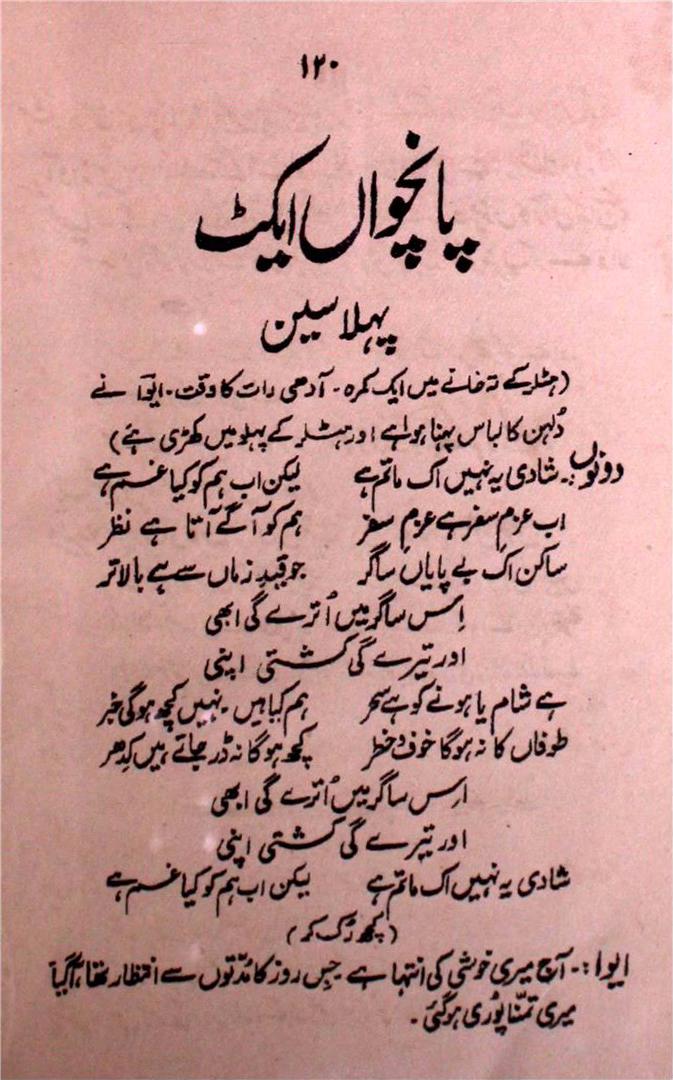 ۱۲۰
پانچواں ایکٹ
پہلا سین
(ہٹلر کے تہ خانے میں ایک کمرہ۔ آدھی رات کا وقت۔ ایوا نے
دُلہن کا لباس پہنا ہوا ہے اور ہٹلر کے پہلو میں کھڑی ہے)
دونوں:۔ شادی یہ نہیں اک ماتم ہے لیکن اب ہم کو کیا غم ہے
اب عزمِ سفر ہے عزمِ سفر ہم کو آگے آتا ہے نظر
ساکن اک بے پایاں ساگر جو قیدِ زماں سے ہے بالاتر
اِس ساگر میں اُترے گی ابھی
اور تیرے گی کشتی اپنی
ہے شام یا ہونے کو ہے سحر ہم کیا ہیں۔ نہیں کچھ ہوگی خبر
طوفاں کا نہ ہوگا خوف و خطر کچھ ہوگا نہ ڈر جاتے ہیں کدھر
اِس ساگر میں اُترے گی ابھی
اور تیرے گی کشتی اپنی
شادی یہ نہیں اک ماتم ہے لیکن اب ہم کو کیا غم ہے
(کچھ رُک کر)
ایوا:۔ آج میری خوشی کی انتہا ہے جس روز کا مُدّتوں سے انتظار تھا، آگیا
میری تمنّا پُوری ہوگئی۔